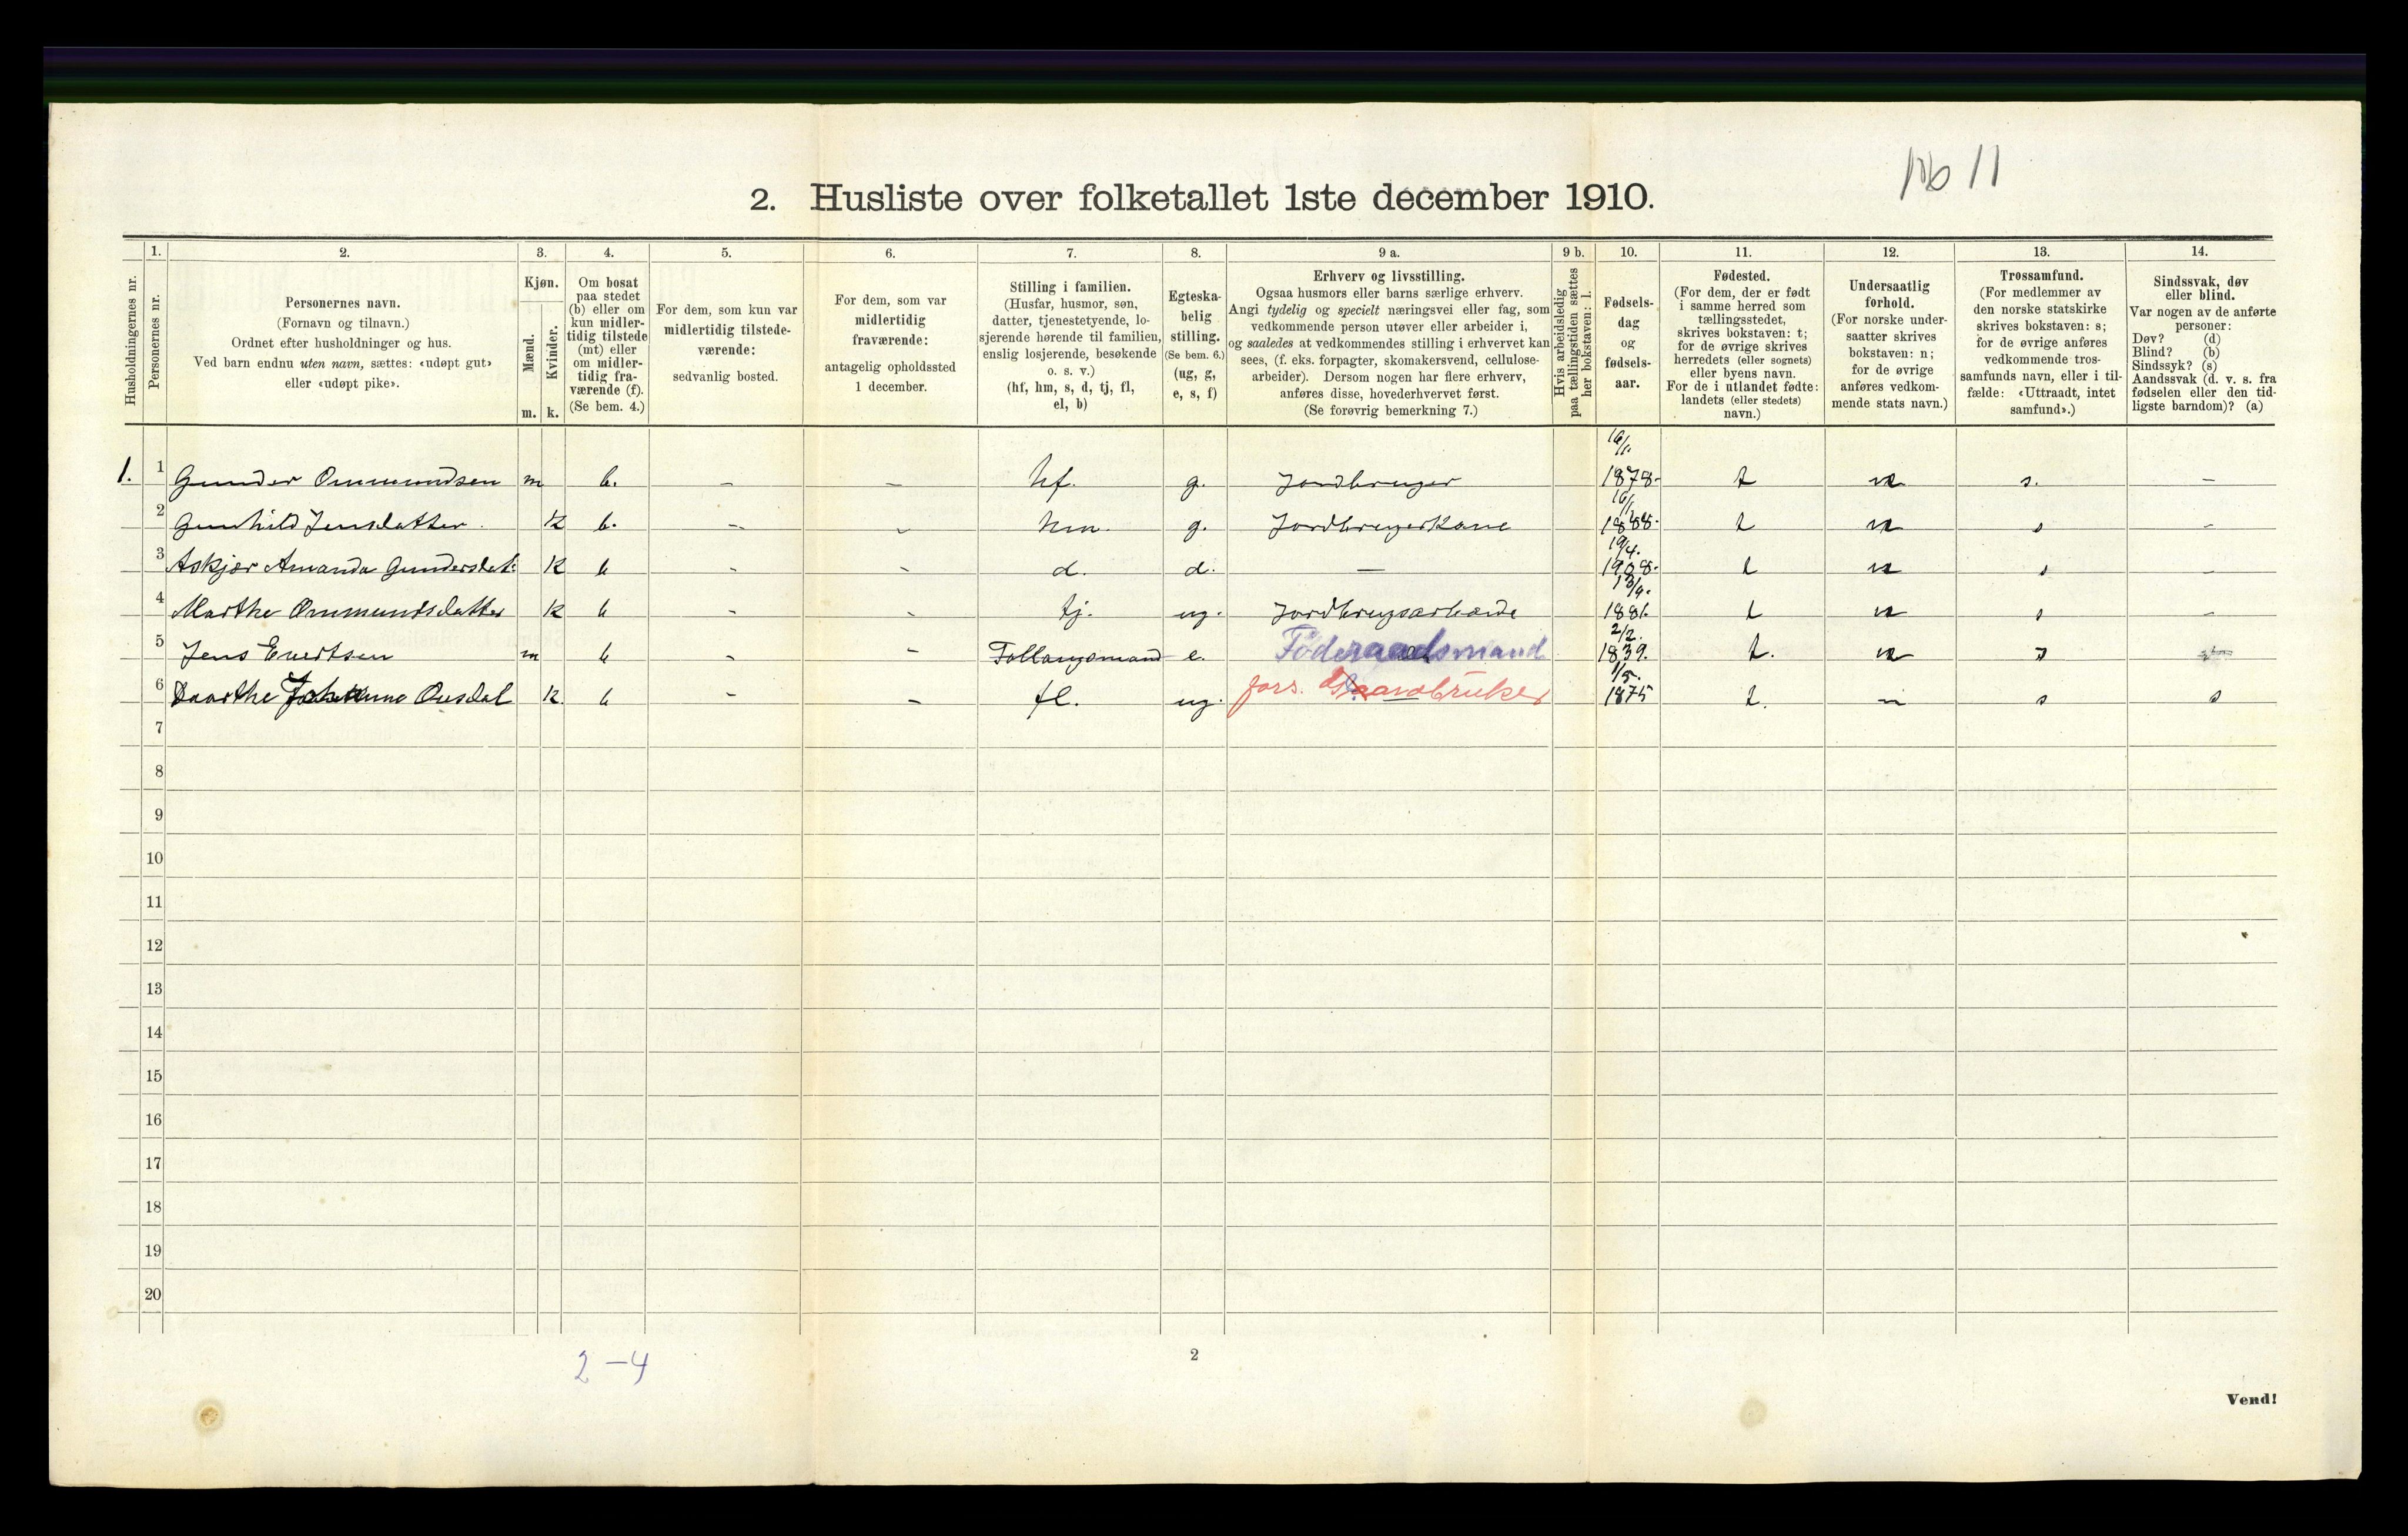 No 11
2. Husliste over folketallet 1ste december 1910.
Husholdningernes nr.
1.
Personernes nr.
2.
Personernes navn.
(Fornavn og tilnavn.)
Ordnet efter husholdninger og hus.
Ved barn endnu uten navn, sættes: «udøpt gut»
eller «udøpt pike».
3.
Kjøn.
Mænd.
Kvinder.
m. k.
4.
Om bosat
paa stedet
(b) eller om
kun midler-
tidig tilstede
(mt) eller
om midler-
tidig fra-
værende (f).
(Se bem. 4.)
5.
For dem, som kun var
midlertidig tilstede-
værende:
sedvanlig bosted.
6.
For dem, som var
midlertidig
fraværende:
antagelig opholdssted
1 december.
7.
Stilling i familien.
(Husfar, husmor, søn,
datter, tjenestetyende, lo-
sjerende hørende til familien,
enslig losjerende, besøkende
o. s. v.)
(hf, hm, s, d, tj, fl,
el, b)
8.
Egteska-
belig
stilling.
(Se bem. 6.)
(ug, g,
e, s, f)
9 a.
Erhverv og livsstilling.
Ogsaa husmors eller barns særlige erhverv.
Angi tydelig og specielt næringsvei eller fag, som
vedkommende person utøver eller arbeider i,
og saaledes at vedkommendes stilling i erhvervet kan
sees, (f. eks. forpagter, skomakersvend, cellulose-
arbeider). Dersom nogen har flere erhverv,
anføres disse, hovederhvervet først.
(Se forøvrig bemerkning 7.)
9 b.
Hvis arbeidsledig
paa tællingstiden sættes
her bokstaven: l.
10.
Fødsels-
dag
og
fødsels-
aar.
11.
Fødested.
(For dem, der er født
i samme herred som
tællingsstedet,
skrives bokstaven: t;
for de øvrige skrives
herredets (eller sognets)
eller byens navn.
For de i utlandet fødte:
landets (eller stedets)
navn.)
12.
Undersaatlig
forhold.
(For norske under-
saatter skrives
bokstaven: n;
for de øvrige
anføres vedkom-
mende stats navn.)
13.
Trossamfund.
(For medlemmer av
den norske statskirke
skrives bokstaven: s;
for de øvrige anføres
vedkommende tros-
samfunds navn, eller i til-
fælde: «Uttraadt, intet
samfund».)
14.
Sindssvak, døv
eller blind.
Var nogen av de anførte
personer:
Døv? (d)
Blind? (b)
Sindssyk? (s)
Aandssvak (d. v. s. fra
fødselen eller den tid-
ligste barndom)? (a)
1. 1 Gunder Ommundsen m b. - - hf. g. Jordbruger 16/11. 1878. t n s. -
2 Gunhild Jensdatter. k b. - - hm. g. Jordbrugerkone 16/1 1888. t n s -
3 Askjær Amanda Gundersdat: k b - - d. d. — 19/4. 1908. t n s -
4 Marthe Ommundsdatter k b - - tj. ug. 13/9. 1881. t n s -
5 Jens Evertsen m b - - e. Föderaadsmand 2/2. 1839. t. n s
6 k. b - - fl. ug. fors. Gaardbruker 1/5. 1875 t. n s s
7
8
9
10
11
12
13
14
15
16
17
18
19
20
2-4
2
Vend!